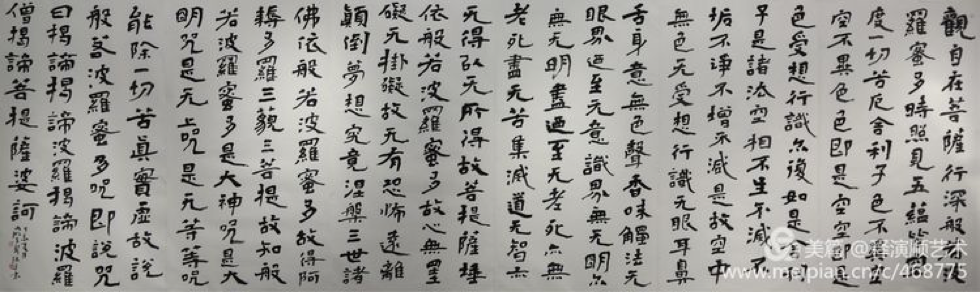 觀自在菩薩行深般若波
羅蜜多時照見五蘊皆空
度一切苦厄舍利子色不異
空不異色色即是空空即是
色受想行識亦復如是舍利
子是諸法空相不生不滅不
垢不淨不增不減是故空中
無色无受想行識无眼耳鼻
舌身意無色聲香味觸法无
眼界迺至无意識界無无明亦
無无明盡迺至无老死亦無
老死盡无苦集滅道无智亦
无得以无所得故菩提薩埵
依般若波羅蜜多故心無罣
礙无掛礙故无有恐怖遠離
顛倒夢想究竟涅槃三世諸
佛依般若波羅蜜多故得阿
耨多羅三藐三菩提故知般
若波羅蜜多是大神咒是大
明咒是无上咒是无等等咒
能除一切苦真實虛故說
般若波羅蜜多咒即說咒
曰揭諦揭諦波羅揭諦波羅
僧揭諦菩提薩婆訶
美篇@释演顺艺术
www.meipian.cn/c/468775